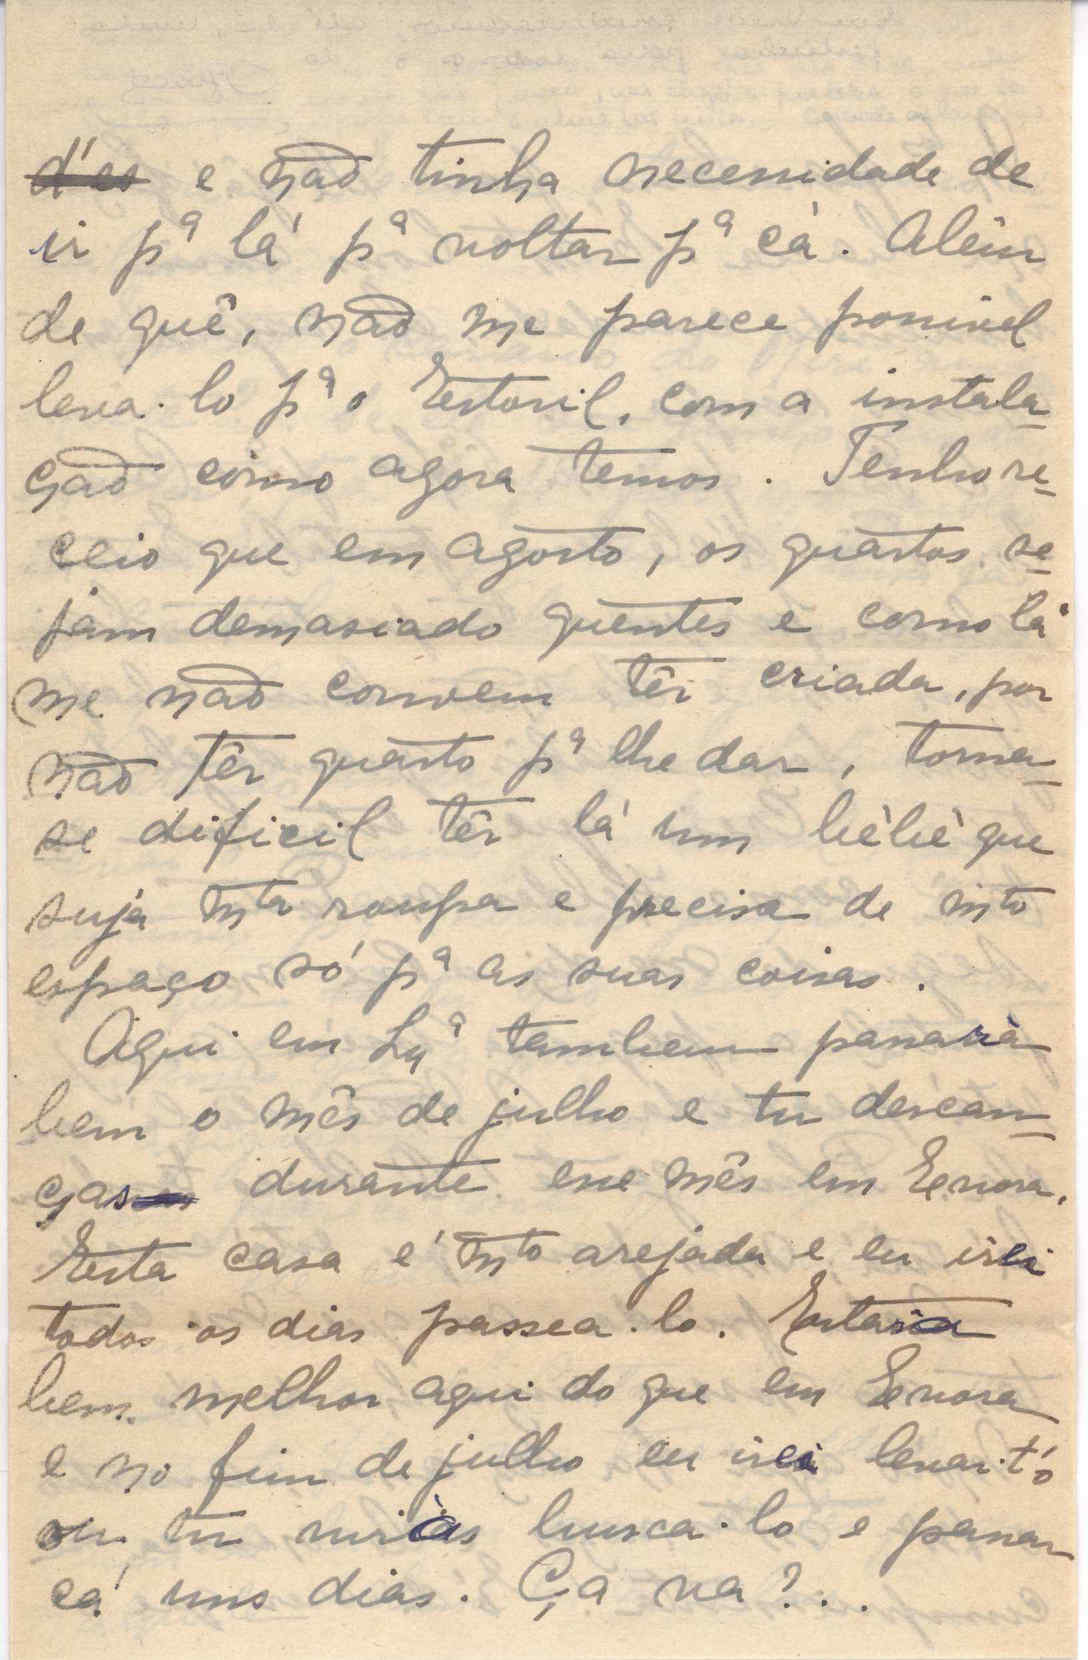 d'es e não tinha necessidade de
ir pª lá pª voltar pª cá. Alêm
de quê, não me parece possivel
leva-lo pª o Estoril, com a instala-
ção cômo agora temos. Tenho re-
ceio que em agosto, os quartos se-
jam demasiado quentes e como lá
me não convem têr criada, por
não têr quarto pª lhe dar, torna-
se dificil têr lá um bèbè que
suja mta roupa e precisa de mto
espaço só pª as suas coisas.
Aqui em Lxª tambem passarà
bem o mês de julho e tu descan-
ças durante esse mês em Evora.
Esta casa é mto arejada e eu irei
todos os dias passea-lo. Estaria
bem melhor aqui do que em Evora
e no fim de julho eu irei levar-t'ó
ou tu viràs busca-lo e passar
cá uns dias. Ça va?..